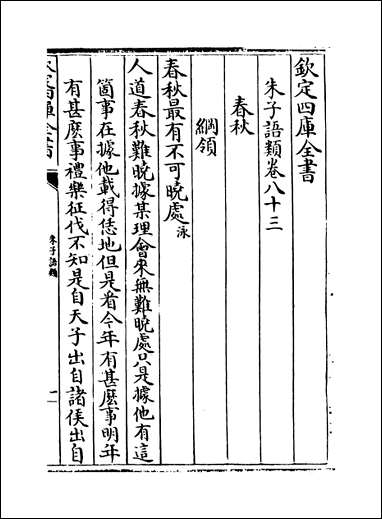 欽定四庫全書
朱子語類卷八十三
春秋
綱領
春秋最有不可曉處泳
人道春秋難曉據某理會來無難曉處只是據他有這
箇事在據他載得恁地但是看今年有甚麽事明年
有甚麽事禮樂征伐不知是自天子出自諸侯出自
朱子語類
一